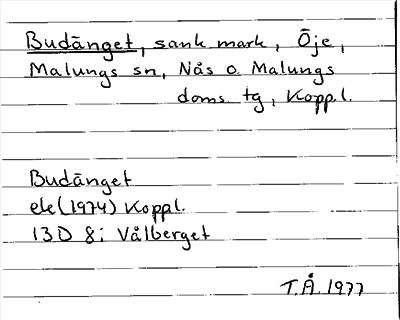 Budänget, sank mark, Öje,
Malungs sn, Nås o. Malungs
doms. tg, Koppl.
Budänget
ek (1974) Koppl.
13D 8i Vålberget
T.Å. 1977